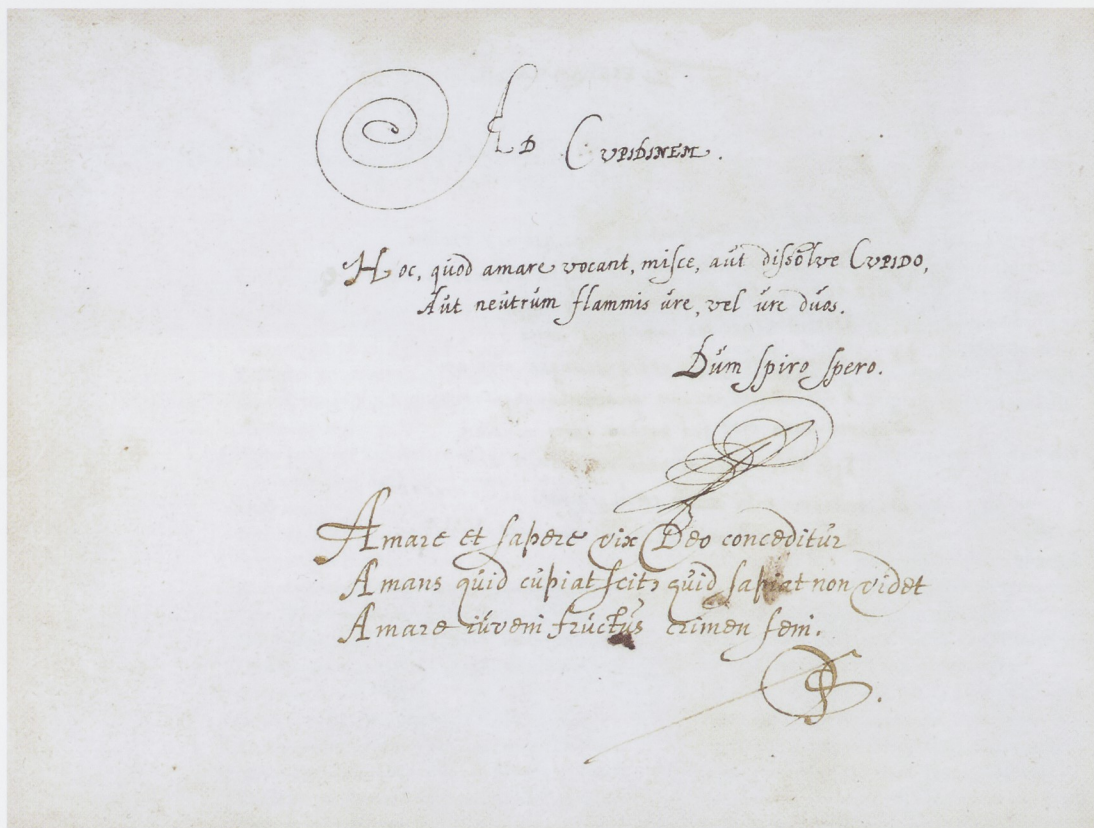 AD CVPIDINEM.
Hoc, quod amare vocant, misce, aut dissolve CVPIDO,
Aut neutrum flammis ure, vel ure duos.
Dum spiro spero.
Amare et sapere vix Deo conceditur
Amans quid cupiat scit, quid sapiat non videt
Amare iuveni fructus crimen seni.